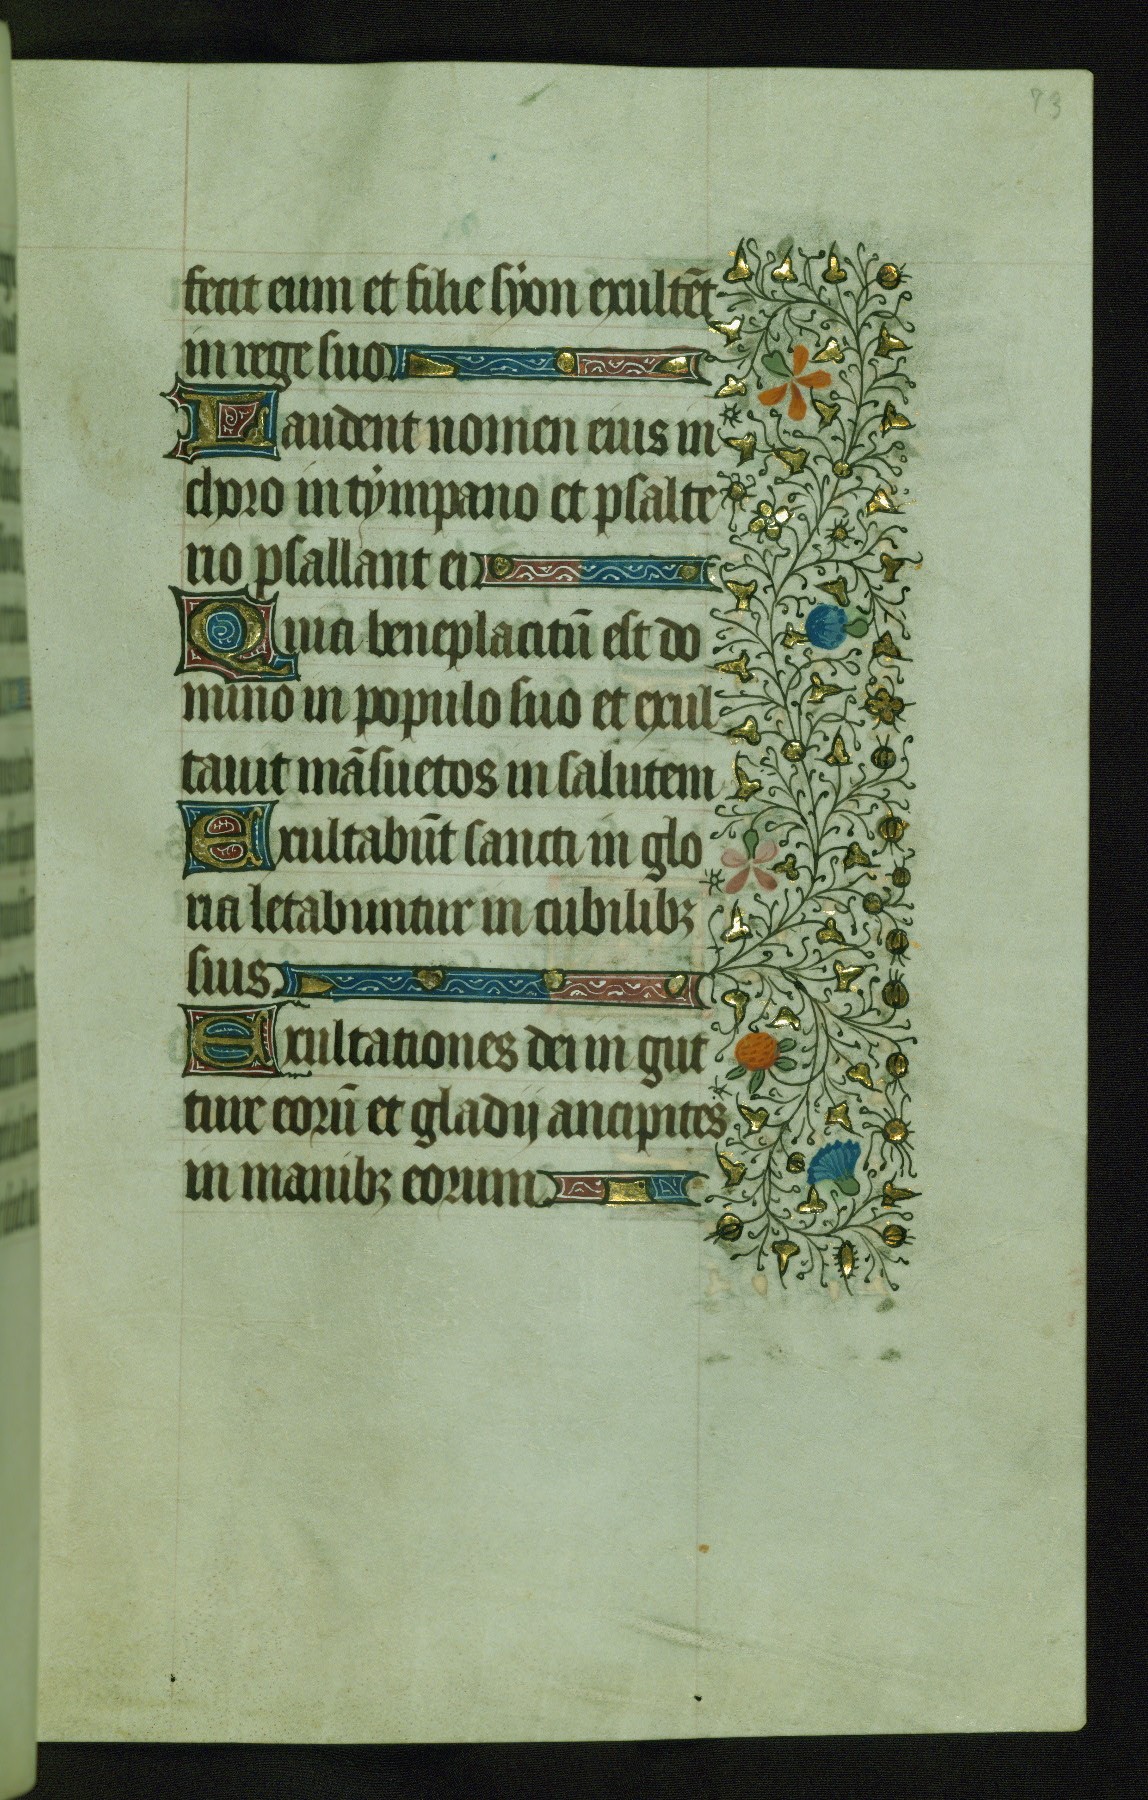 73
fecit eum et filie syon exultēt
in rege suo
Laudent nomen eius in
choro in tympano et psalte
rio psallant ei
Quia beneplacitū est do
mino in populo suo et exul
tauit māsuetos in salutem
Exultabūt sancti in glo
ria letabuntur in cubilibꝫ
suis
Exultationes dei in gut
ture eorū et gladij ancipites
in manibꝫ eorum